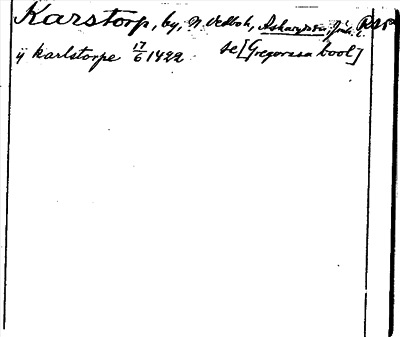 Karstorp, by, N. Vedboh, Askaryds sn, Jönk. l.
ij karlstorpe 17/6 1422 se [Gregorssa bool]